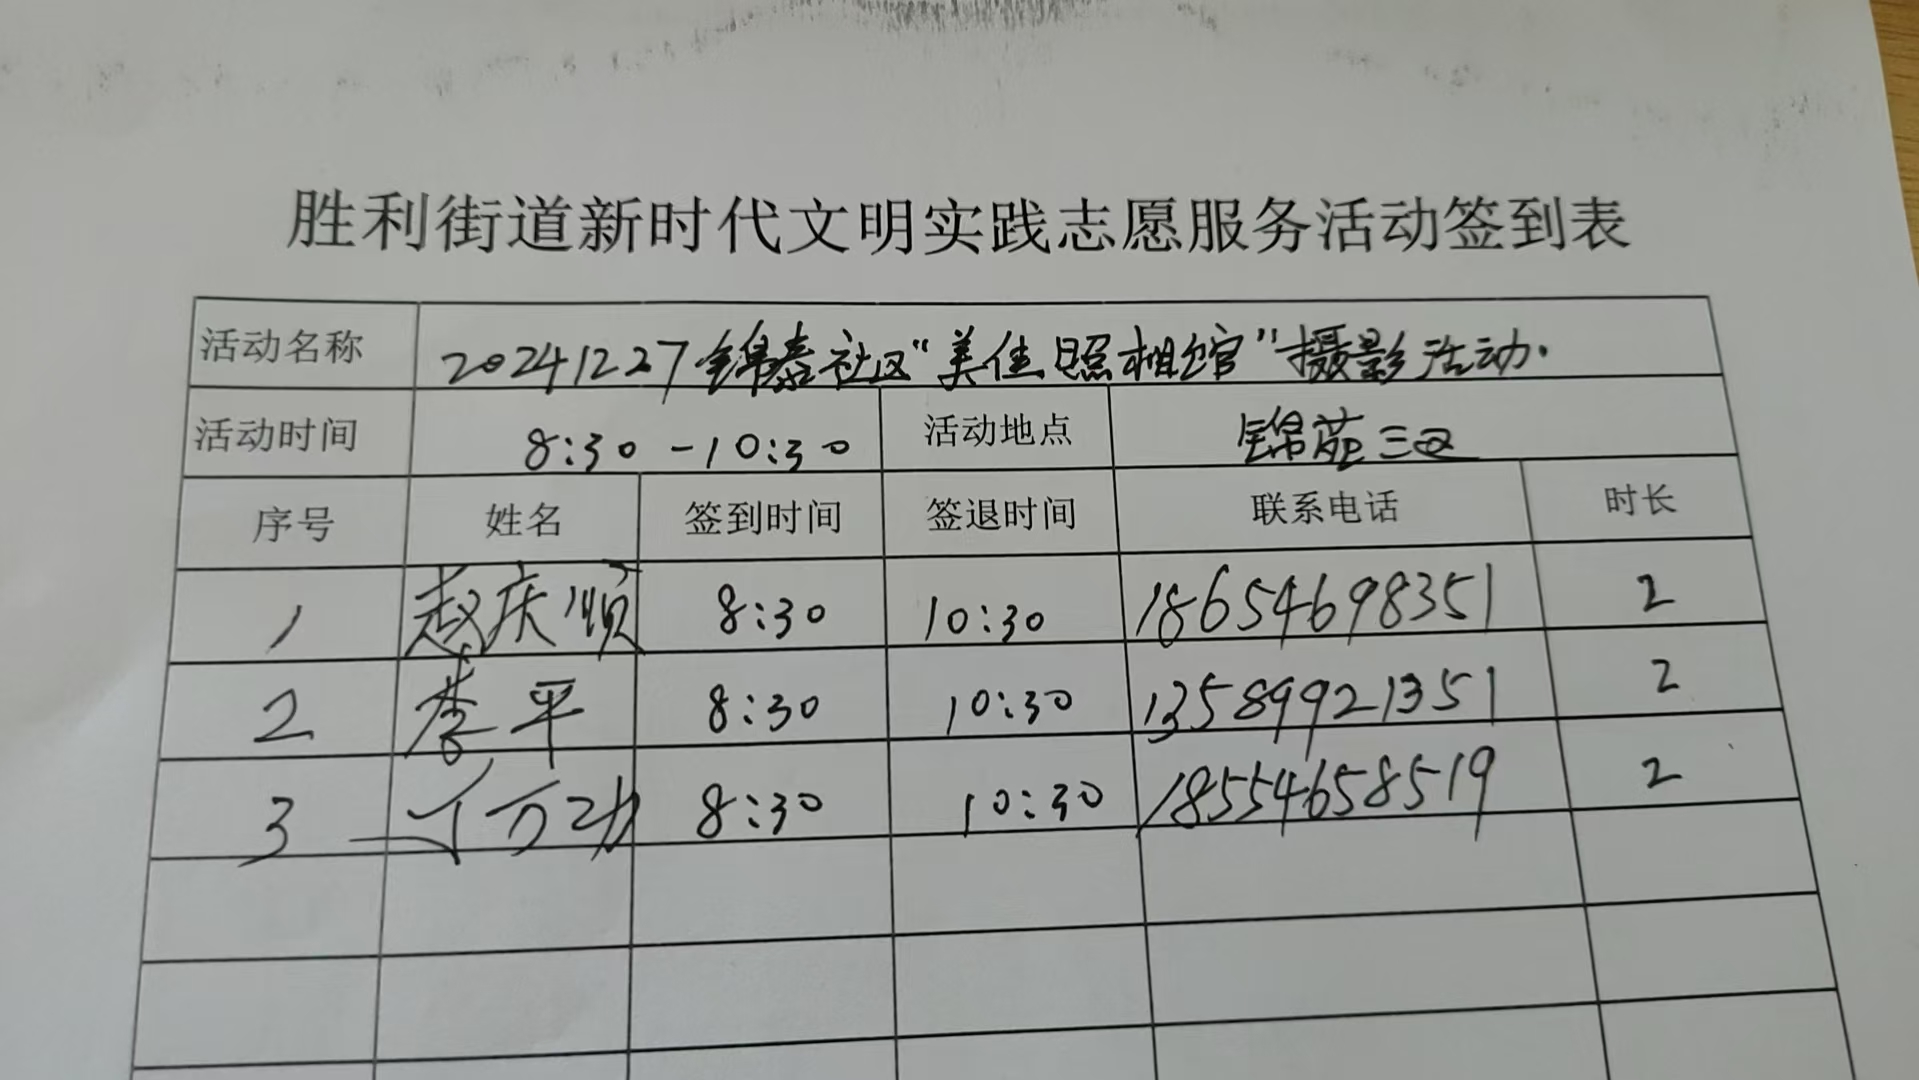 胜利街道新时代文明实践志愿服务活动签到表
活动名称 20241227锦泰社区“美佳照相馆”摄影活动.
活动时间 8:30-10:30 活动地点 锦苑三区
序号 姓名 签到时间 签退时间 联系电话 时长
1 赵庆顺 8:30 10:30 18654698351 2
2 李平 8:30 10:30 13589921351 2
3 丁万功 8:30 10:30 18554658519 2